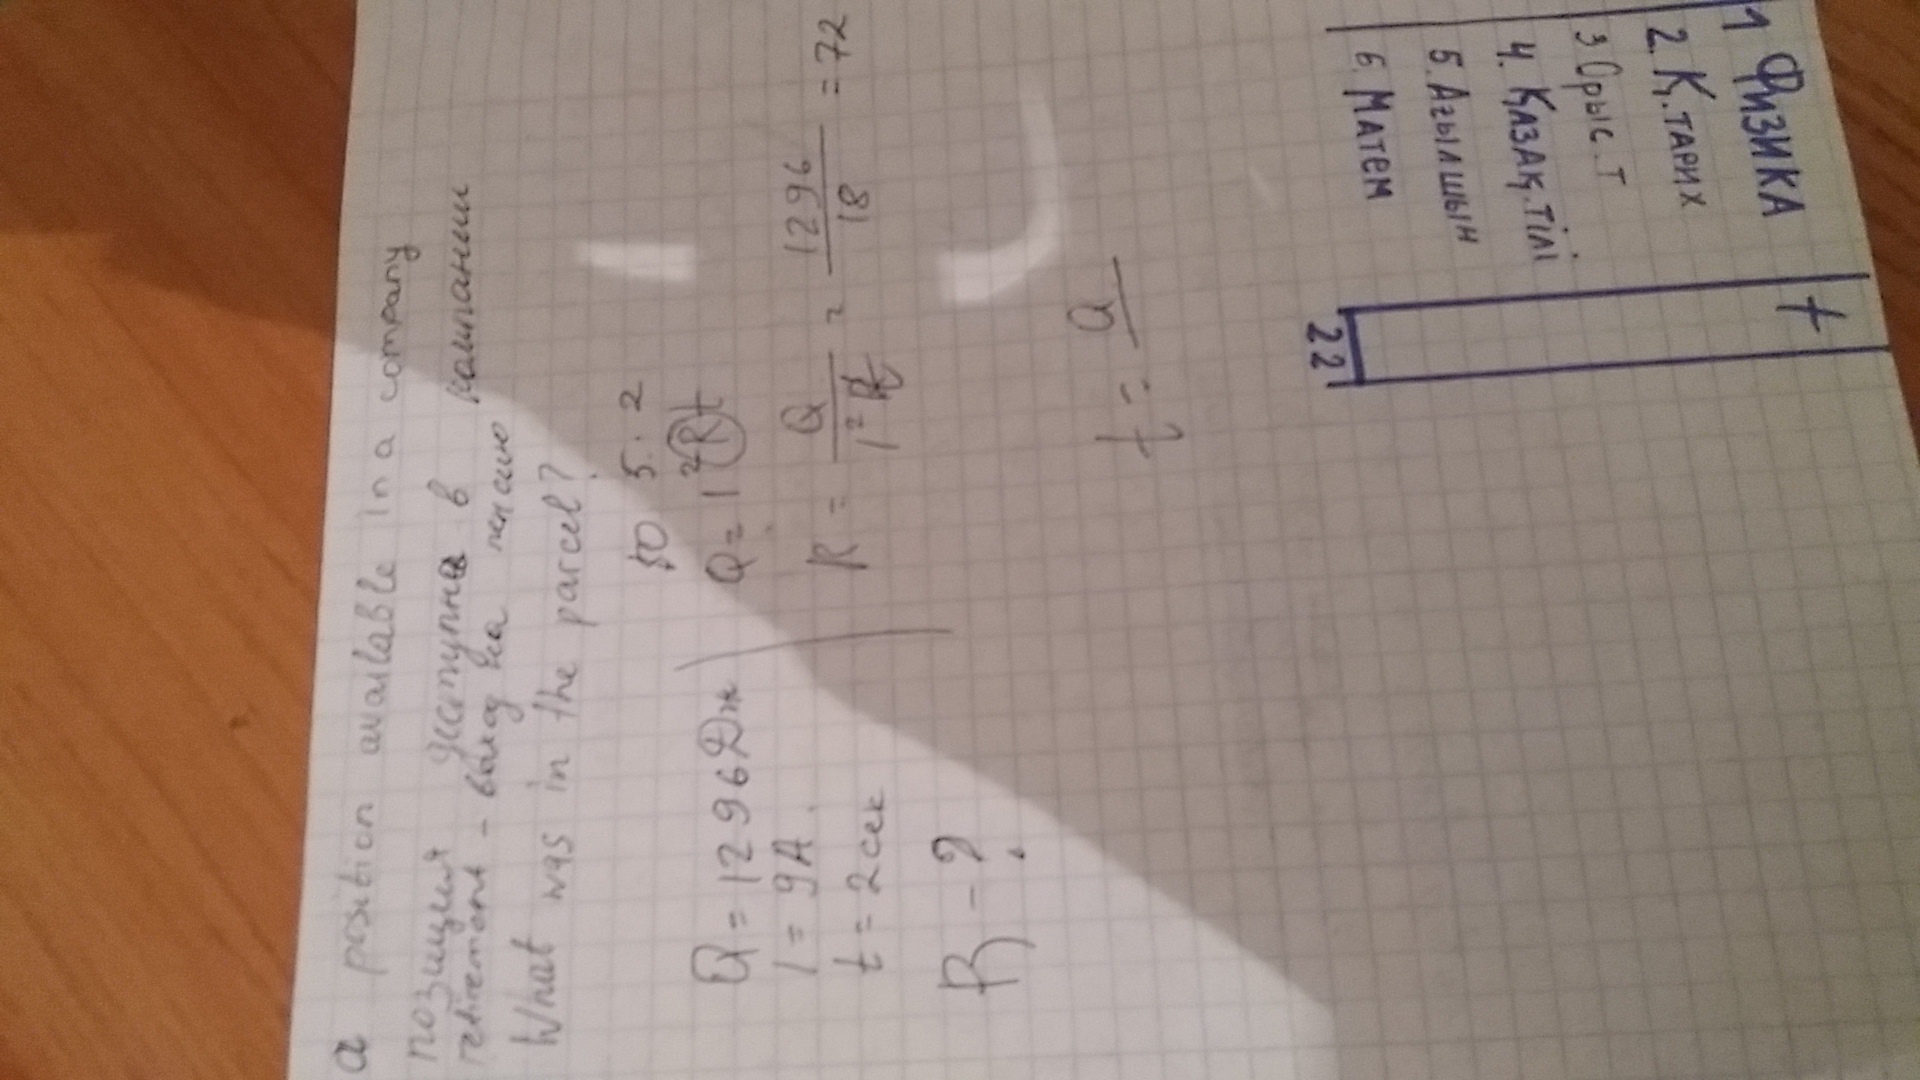 a position available in a company
позиция доступна в компании
retirement - выход на пенсию
What was in the parcel?
50 5. 2
Q = 1296 Дж
I = 9A.
t = 2сек
R - ?
Q = I²Rt
R = Q / I²t = 1296 / 18 = 72
I = Q
1 ФИЗИКА t
2. Қ.ТАРИХ
3 Орыс.т
4. ҚАЗАҚ.ТІЛІ
5. Ағылшын
6. МАТЕМ
22